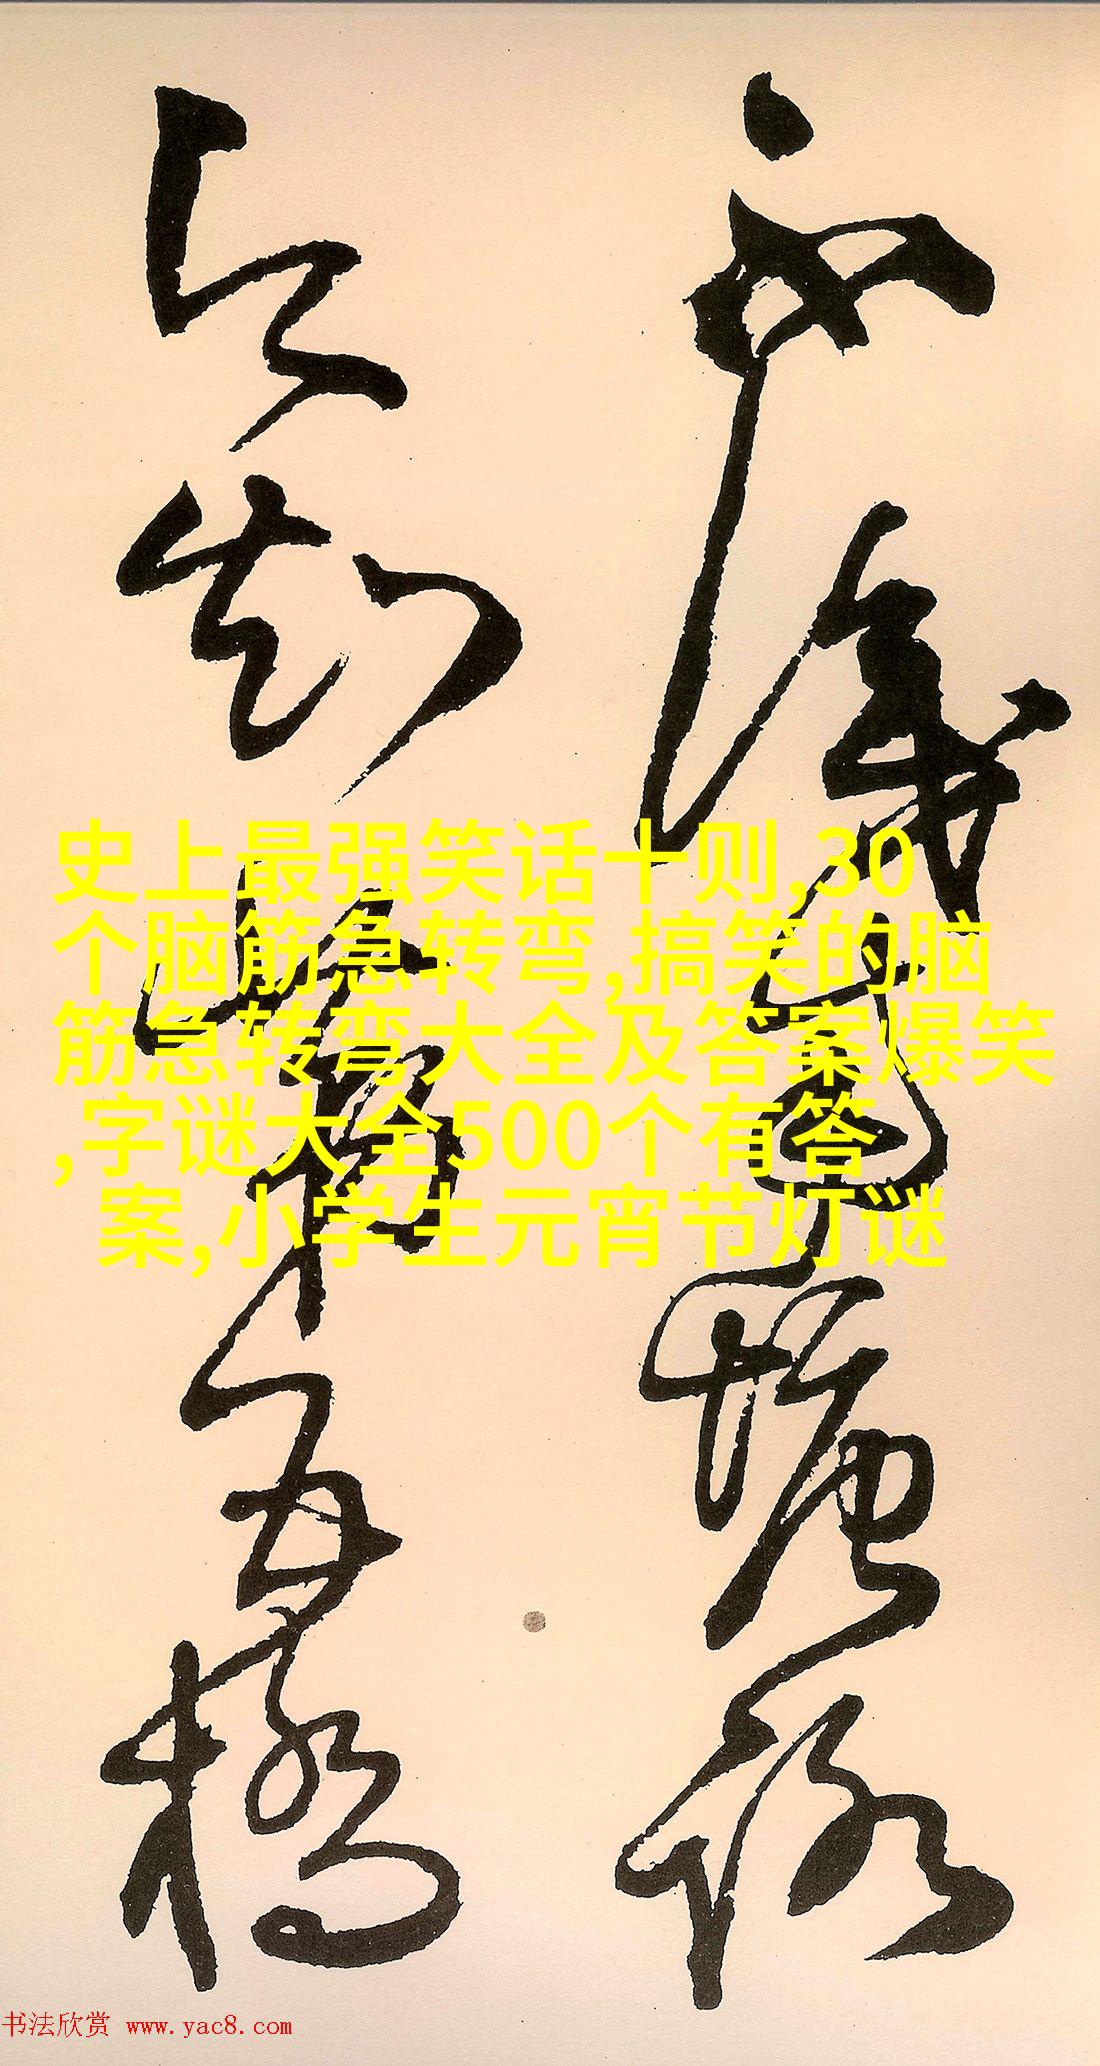 不識南塘路
今知第五橋
史上最强笑话十则,30
个脑筋急转弯,搞笑的脑
筋急转弯大全及答案爆笑
,字谜大全500个有答
案,小学生元宵节灯谜
书法欣赏 www.yac8.com